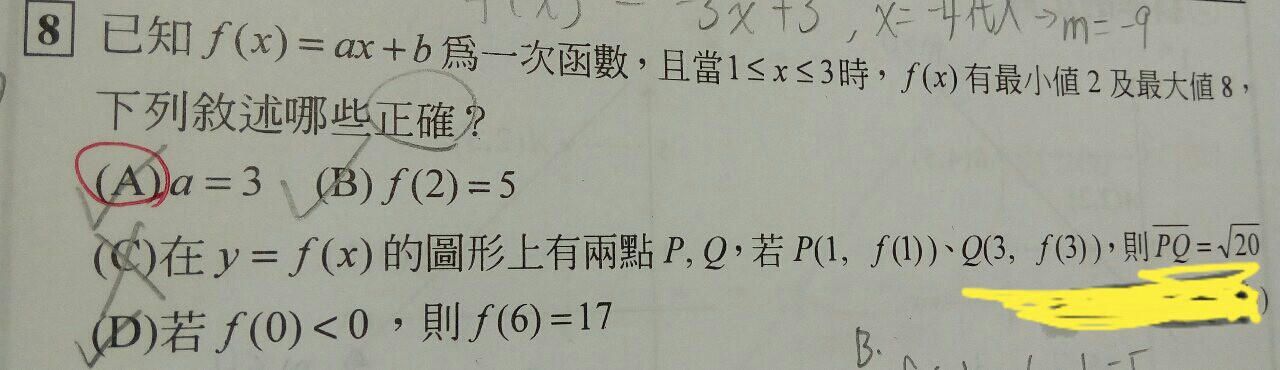 f(x) = -3x+3 , x=-4代入→m=-9
8 已知 f(x)=ax+b 為一次函數，且當1≤x≤3時，f(x)有最小值2及最大值8，
下列敘述哪些正確？
(A) a=3 (B) f(2)=5
(C)在 y=f(x)的圖形上有兩點 P, Q，若 P(1, f(1))、Q(3, f(3))，則PQ=√20
(D)若 f(0)<0，則 f(6)=17
)
B.